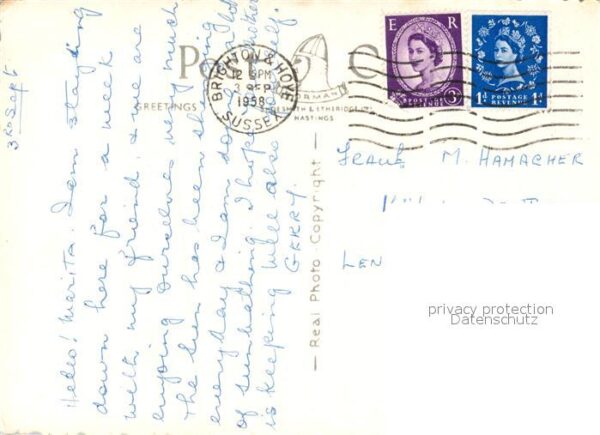 3rd Sept
Hello! Marita. I am staying
down here for a week
with my friend, & we are
enjoying ourselves very much
The sun has been shining
everyday & I am doing lot
of sunbathing. I hope
is keeping well also
GERRY
Post C
GREETINGS
NORMAN
SHOESMITH & ETHERIDGE LTD
HASTINGS
BRIGHTON & HOVE
12 PM
3 SEP
1958
SUSSEX
E R
POSTAGE REVENUE
3D
1D POSTAGE REVENUE 1D
— Real Photo Copyright —
M. HAMACHER
LEN
privacy protection
Datenschutz